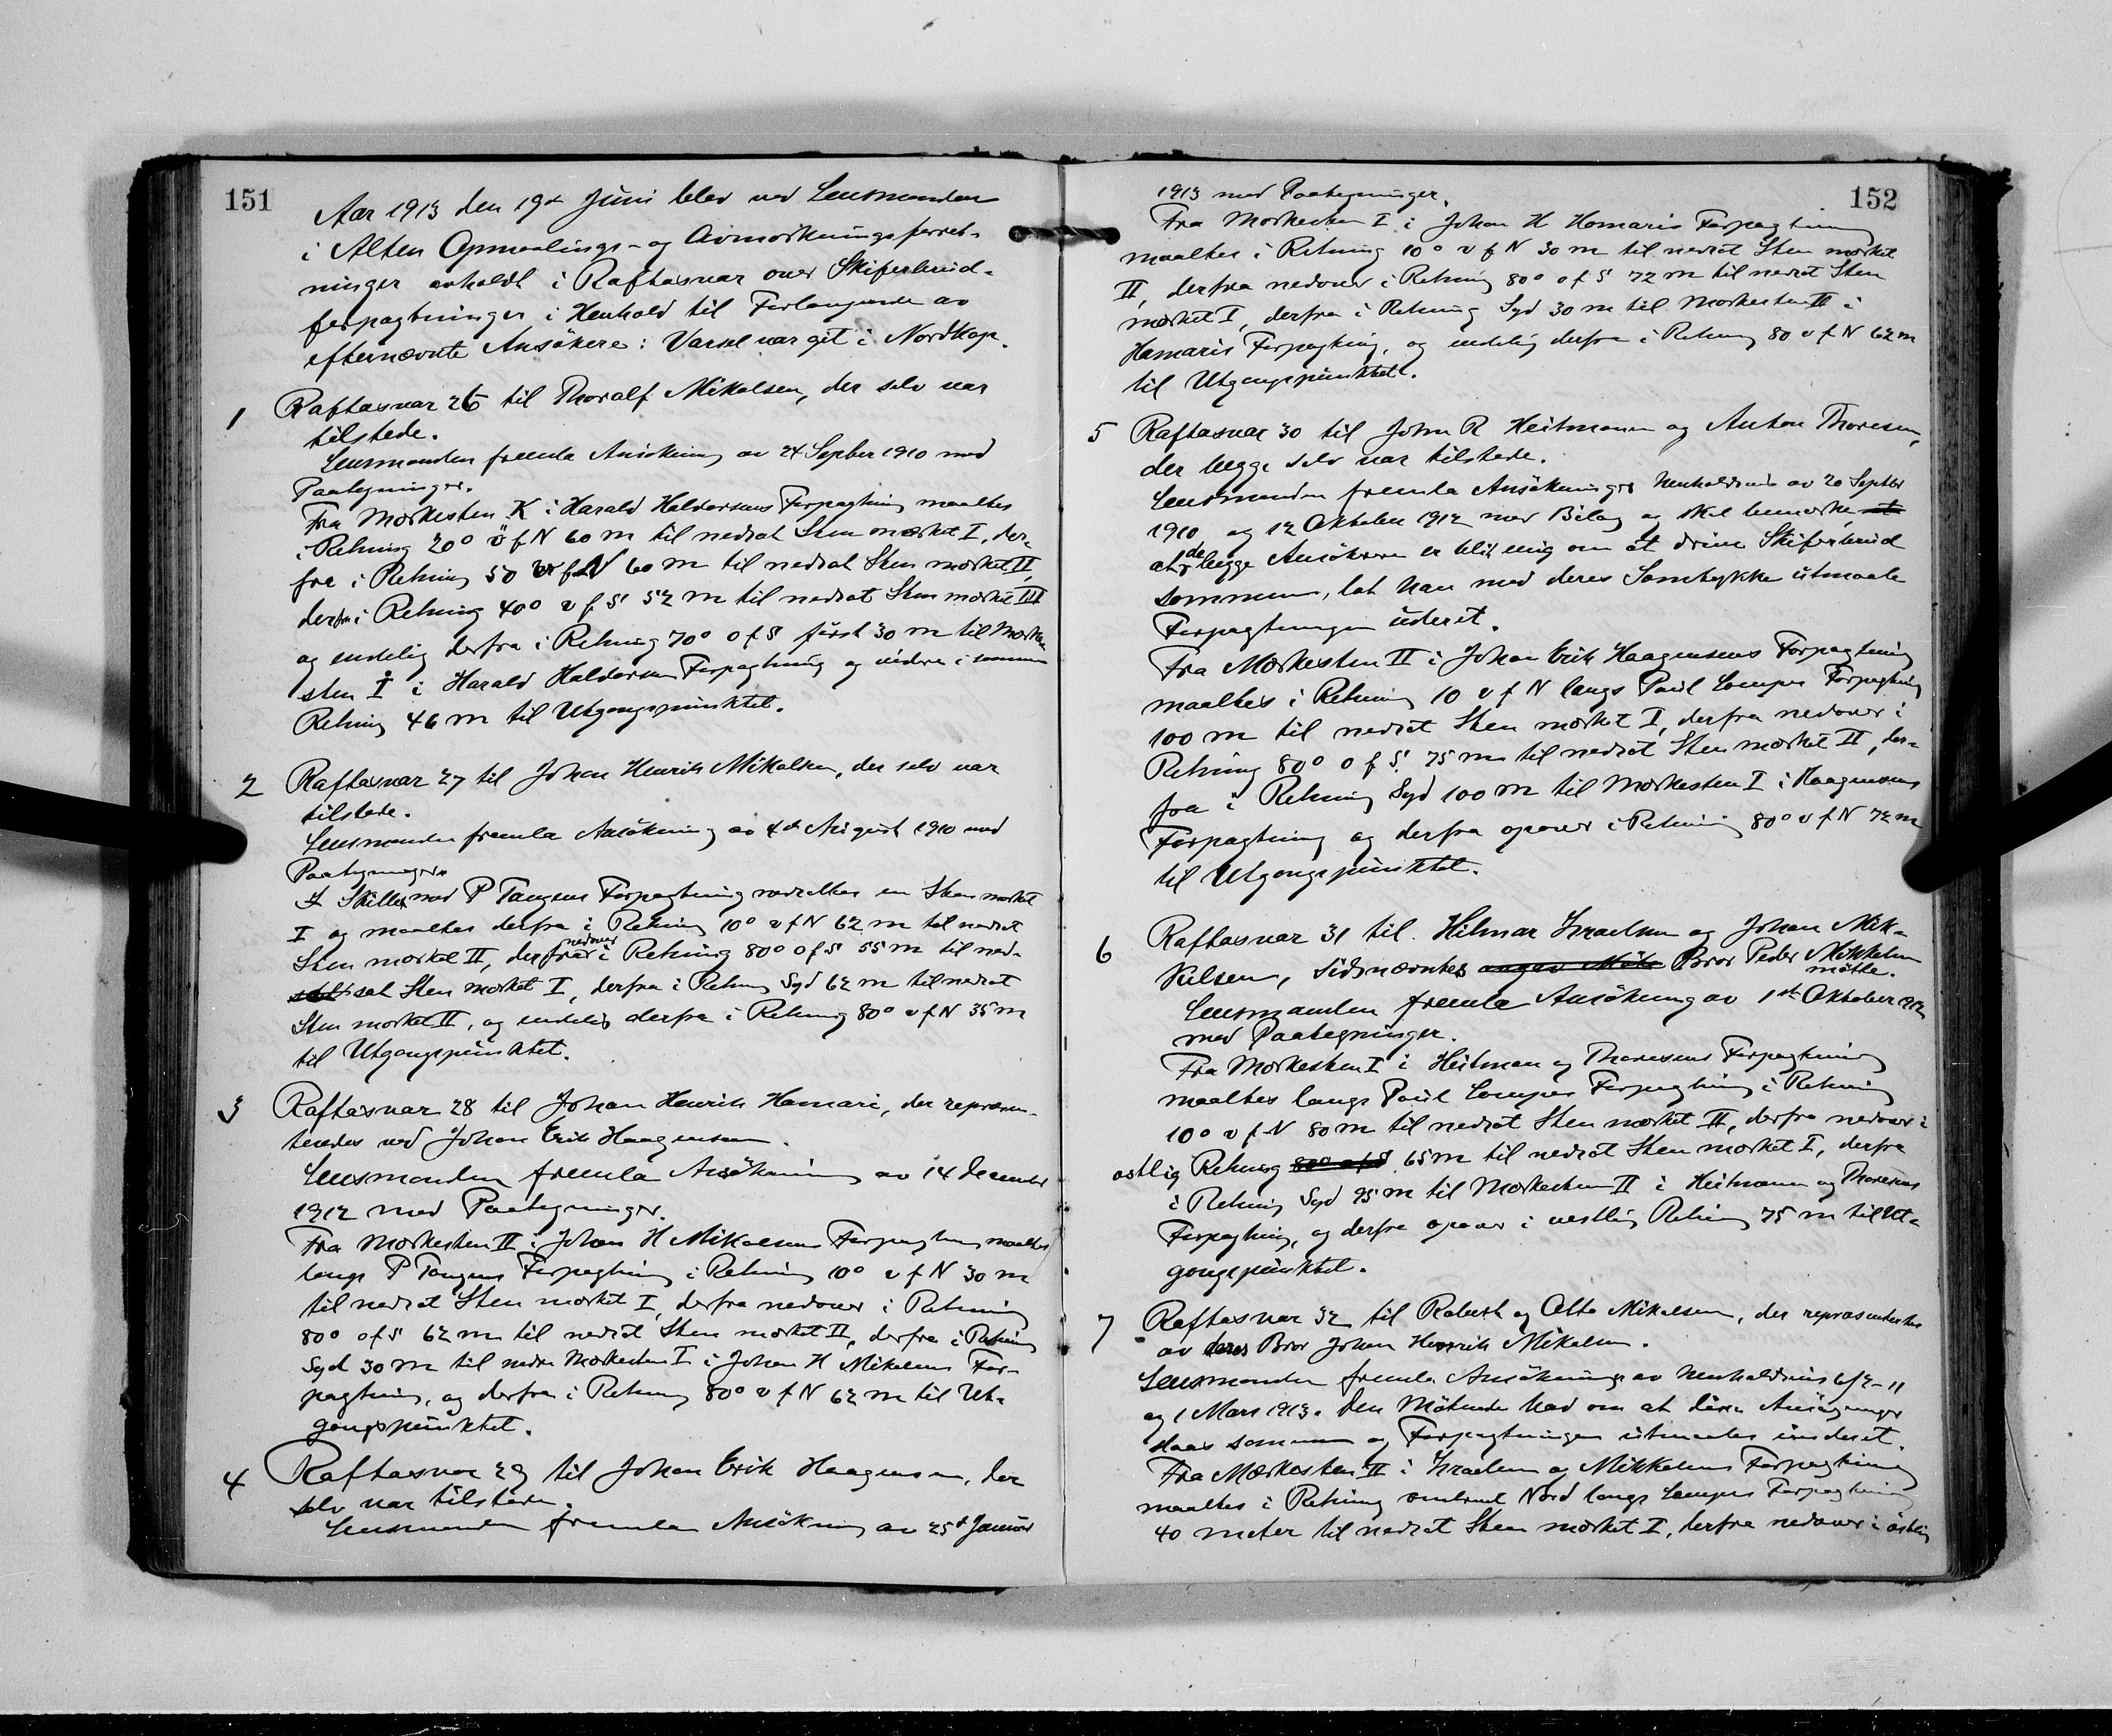 151
Aar 1913 den 19de Juni blev ved Lensmanden
i Alten Opmaalings- og Avmærkningsforret-
ninger avholdt i Raftasvar over Skiferbrud-
forpagtninger i Henhold til Forlangende av
efternævnte Ansökere: Varsel var git i Nordkap.
1 Raftasvar 26 til Thoralf Mikalsen, der selv var
tilstede.
Lensmanden fremla Ansökning av 24 Septber 1910 med
Paategninger.
Fra Mærkesten K i Harald Haldorsens Forpagtning maaltes
i Retning 20° ö f N 60 m til nedsat Sten mærket I, der-
fra i Retning 50 v f N 60 m til nedsat Sten mærket II,
derfra i Retning 40° v f S 52 m til nedsat Sten mærket III
og endelig derfra i Retning 70° o f S først 30 m til Mærke-
sten I i Harald Haldorsens Forpagtning og videre i samme
Retning 46 m til Utgangspunktet.
2 Raftasvar 27 til Johan Henrik Mikalsen, der selv var
tilstede.
Lensmanden fremla Ansökning av 4de August 1910 med
Paategninger.
I Skillet med P Tangens Forpagtning nedsattes en Sten mærket
I og maaltes derfra i Retning 10° v f N 62 m til nedsat
Sten mærket II, derfra nedover i Retning 80° o f S 55 m til ned-
sat Sten mærket I, derfra i Retning Syd 62 m til nedsat
Sten mærket II, og endelig derfra i Retning 80° v f N 35 m
til Utgangspunktet.
3 Raftasvar 28 til Johan Henrik Hamari, der repræsen-
teredes ved Johan Erik Haagensen.
Lensmanden fremla Ansökning av 14 December
1912 med Paategninger.
Fra Mærkesten II i Johan H Mikalsens Forpagtning maaltes
langs P Tangens Forpagtning i Retning 10° v f N 30 m
til nedsat Sten mærket I, derfra nedover i Retning
80° o f S 62 m til nedsat Sten mærket II, derfra i Retning
Syd 30 m til nedre Mærkesten I i Johan H Mikalsens For-
pagtning, og derfra i Retning 80° v f N 62 m til Ut-
gangspunktet.
4 Raftasvar 29 til Johan Erik Haagensen, der
selv var tilstede.
Lensmanden fremla Ansökning av 25de Januar
152
1913 med Paategninger.
Fra Mærkesten I i Johan H Hamaris Forpagtning
maaltes i Retning 10° v f N 30 m til nedsat Sten mærket
II, derfra nedover i Retning 80° o f S 72 m til nedsat Sten
mærket I, derfra i Retning Syd 30 m til Mærkesten II i
Hamaris Forpagtning, og endelig derfra i Retning 80 v f N 62 m
til Utgangspunktet.
5 Raftasvar 30 til John R Heitmann og Anton Thoresen,
der begge selv var tilstede.
Lensmanden fremla Ansökninger henholdsvis av 20 Septbr
1910 og 12 Oktober 1912 med Bilag og skal bemærke
at de begge Ansökere er blit enig om at drive Skiferbrud
sammen, lot han med deres Samtykke utmaale
Forpagtningen uderet.
Fra Mærkesten II i Johan Erik Haagensens Forpagtning
maaltes i Retning 10 v f N langs Paul Compes Forpagtning
100 m til nedsat Sten mærket I, derfra nedover i
Retning 80° o f S. 75 m til nedsat Sten mærket II, der-
fra i Retning Syd 100 m til Mærkesten I i Haagensens
Forpagtning og derfra opover i Retning 80° v f N 72 m
til Utgangspunktet.
6 Raftasvar 31 til Hilmar Israelsen og Johan Mik-
kelsen, Sidstnævntes Bror Peder Mikkelsen
mötte.
Lensmanden fremla Ansökning av 1ste Oktober 1912
med Paategninger.
Fra Mærkesten I i Heitman og Thoresens Forpagtning
maaltes langs Paul Compes Forpagtning i Retning
10° v f N 80 m til nedsat Sten mærket II, derfra nedover i
østlig Retning 65 m til nedsat Sten mærket I, derfra
i Retning Syd 95 m til Mærkesten II i Heitmann og Thoresens
Forpagtning, og derfra opover i vestlig Retning 75 m til Ut-
gangspunktet.
7 Raftasvar 32 til Robert og Otto Mikalsen, der repræsentertes
av deres Bror Johan Henrik Mikalsen.
Lensmanden fremla Ansökninger av henholdsvis 6/2-11
og 1 Mars 1913. Den Mötende bad om at disse Ansökninger
slaas sammen og Forpagtningen utmaales underet.
Fra Mærkesten II i Israelsen og Mikkelsens Forpagtning
maaltes i Retning omtrent Nord langs Compes Forpagtning
40 meter til nedsat Sten mærket I, derfra nedover i østlig